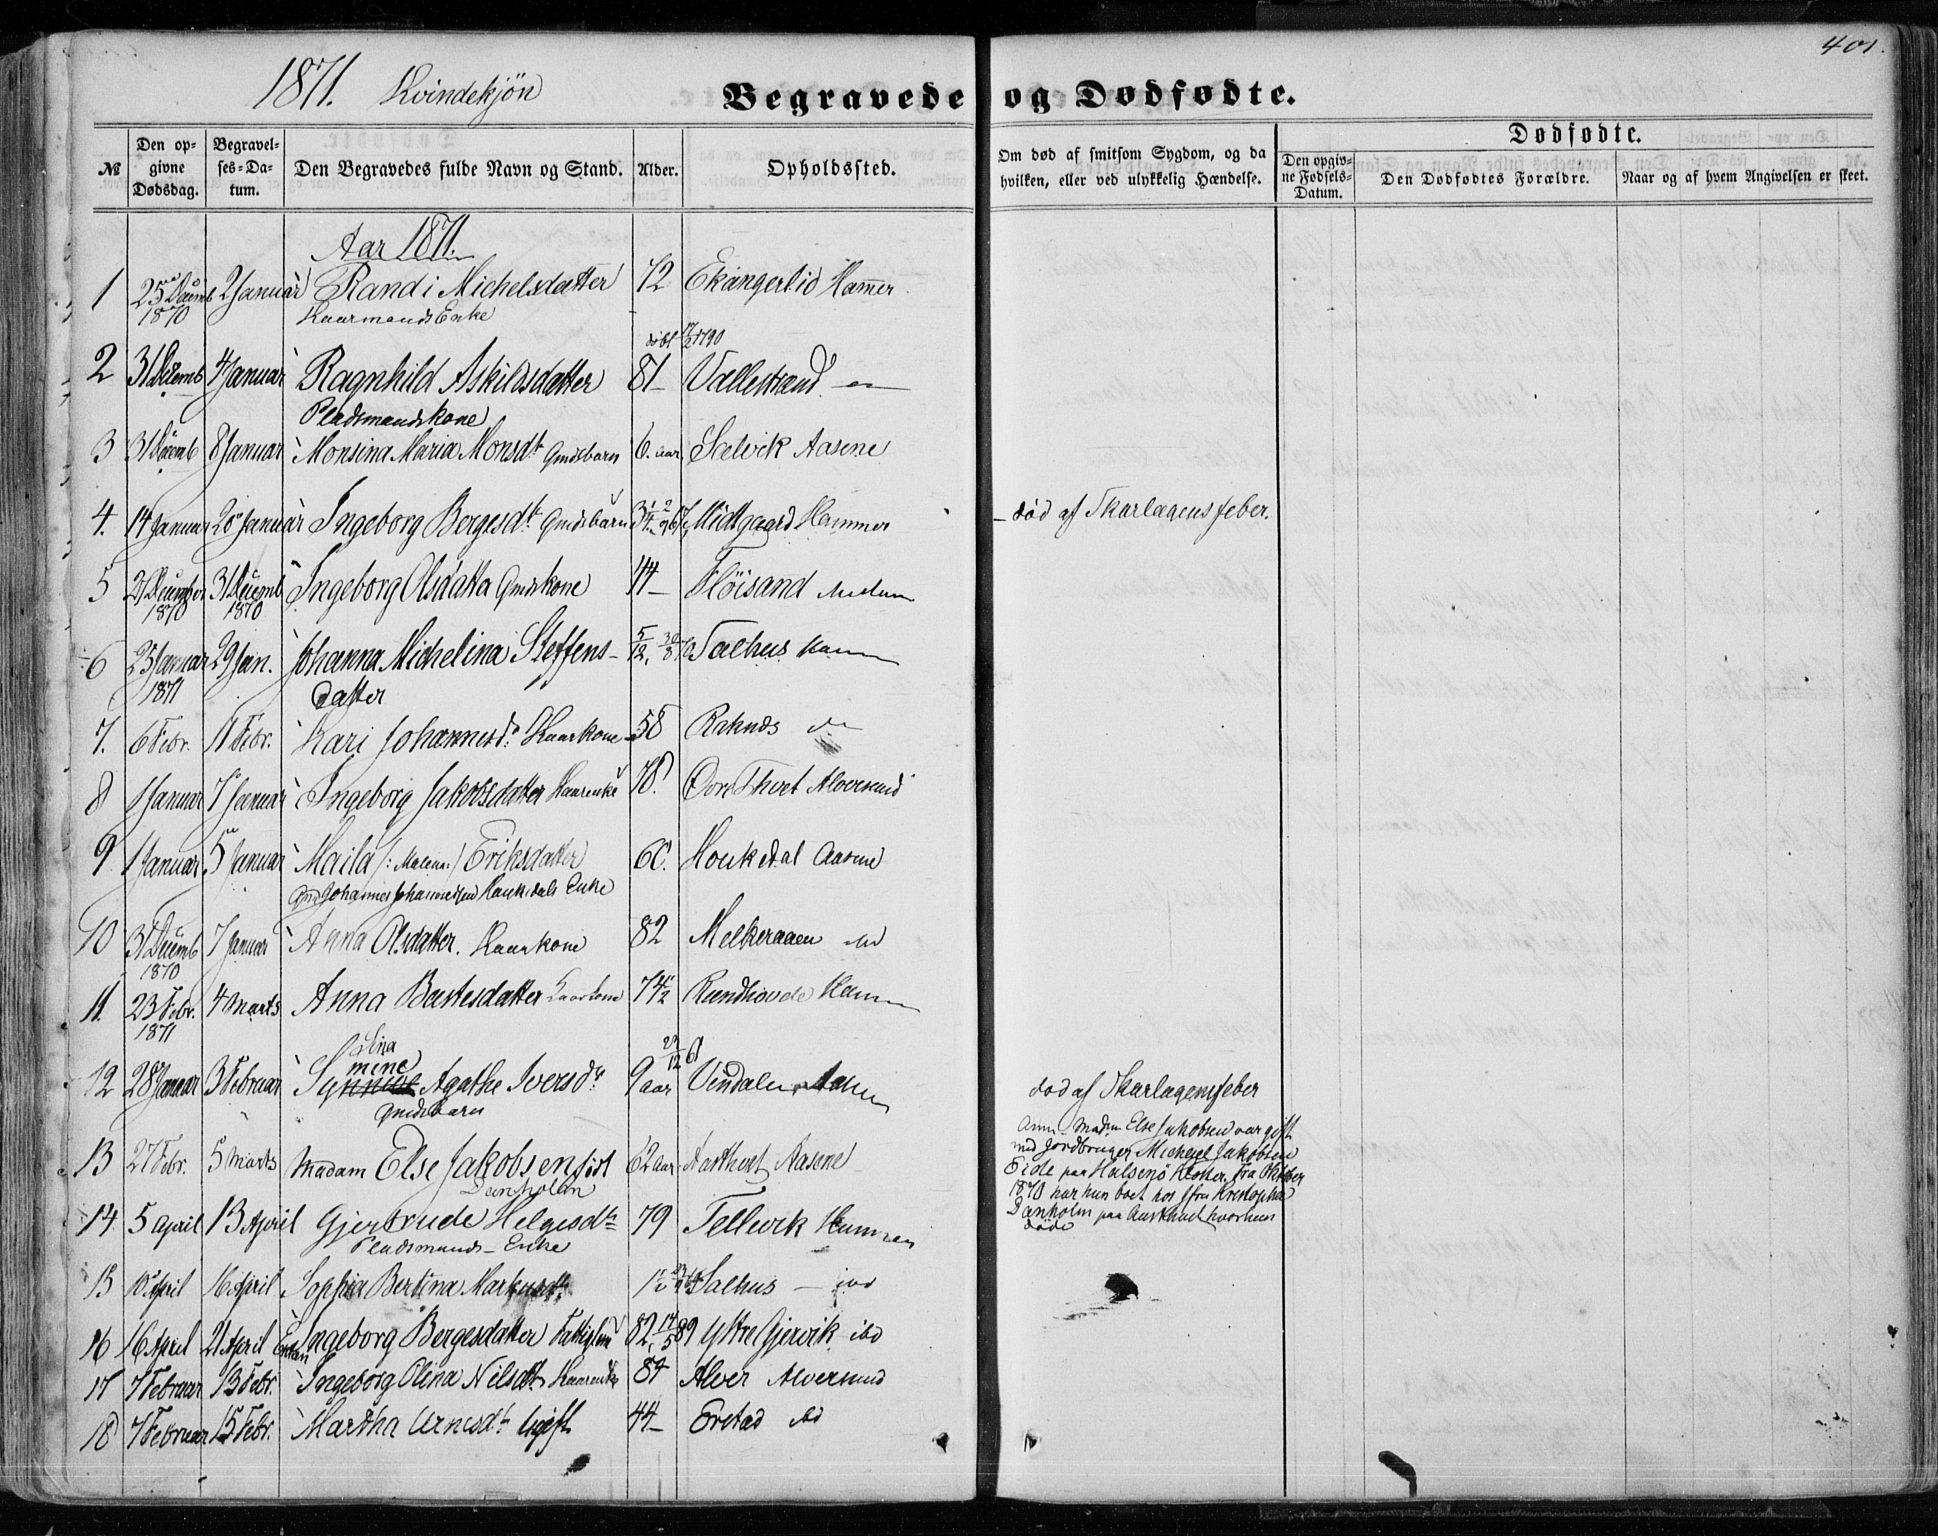 401.
1871. Kvindekjön
Begravede og Dødfødte.
№
Den opgivne Dødsdag.
Begravelses-Datum.
Den Begravedes fulde Navn og Stand.
Alder.
Opholdssted.
Om død af smitsom Sygdom, og da hvilken, eller ved ulykkelig Hændelse.
Dødfødte.
Den opgivne Fødsels-Datum.
Den Dødfødtes Forældre.
Naar og af hvem Angivelsen er skeet.
Aar 1871.
1 25 Decemb 1870 2 Januar Randi Michelsdatter 72 Ekangerlid Hammer
Kaarmands Enke
døbt 1790
2 31 Decemb 4 Januar Ragnhild Askildsdatter 81 Vallestrand
Pladsmandskone
3 31 Decemb 8 Januar Monsina Maria Monsdt Gmdsbarn 6. aar Sælvik Aasene
4. 14 Januar 20 Januar Ingeborg Bergesdt. Gmdsbarn Midtgaard Hammer død af Skarlagensfeber.
5 21 December 1870 31 Decemb 1870 Ingeborg Olsdatter Gmdskone 44 Flöisand
6 25 Januar 1871 29 Jan. Johanna Michelina Steffens- 5/12 Salhus
datter
7. 6 Febr. 11 Febr. Kari Johannesd. Kaarkone 58 Raknæs do
8 1 Januar 7 Januar Ingeborg Jakobsdatter Kaarenke 78. Övre Thvet Alversund
9 1 Januar 5 Januar Maila /: Malene :/ Eriksdatter 60. Houkedal Aasene
Gmd Johannes Johannessen Haukedals Enke
10 31 Decemb 1870 7 Januar Anna Olsdatter. Kaarkone 82 Melkeraaen
11. 23 Febr. 1871 4 Marts Anna Bastesdatter Kaarkone 74½ Rundhovde Ham
Sina
mine
12 28 Januar 3 Februar Synneve Agathe Iversdt. 9 aar Vindalen død af Skarlagensfeber
Gmdsbarn
13 27 Febr. 5 Marts Madam Else Jakobsen född 62 aar Aasthvet Aasene
Danholm
Anm. Madm Else Jakobsen var gift
med Jordbruger Michael Jakobsen
Eide paa Halsenö Kloster. Fra Oktober
1870 har hun boet hos fru Kristopha
Danholm paa Aasthvet hvor hun
døde
14. 5 April 13 April Gjertrude Helgesdtr 79 Tellevik Hammer
Pladsmands-Enke
15 10 April 16 April Sophia Bertina Markusdt. Salhus — ibd
16 16 April 21 April Enken Ingeborg Bergesdatter Fattiglem 82, 14/5 89 Ytre Gjervik ibd
17 7 Februar 13 Febr. Ingeborg Olina Nilsdt. Kaarenke 84 Alver Alversund
18 7 Februar 15 Febr. Martha Arnesdt. Ugift 44 Erstad ibd